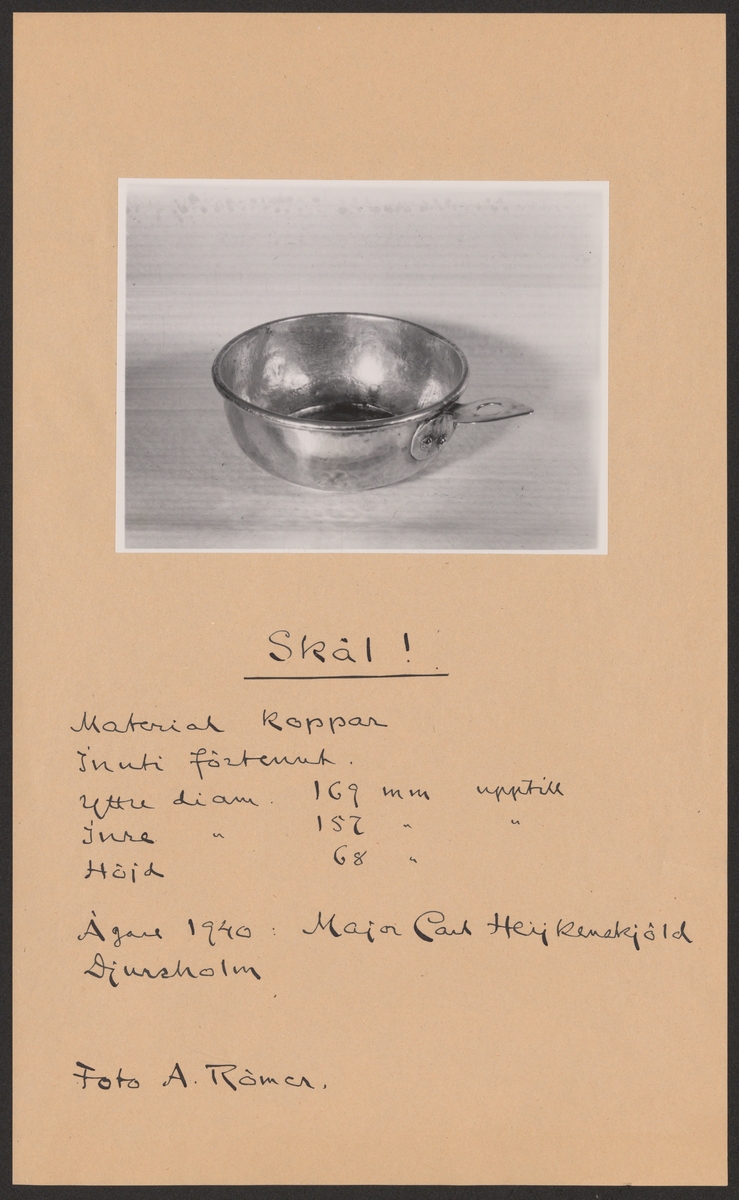 Skål !
Material koppar
Inuti förtennt.
Yttre diam. 169 mm upptill
Inre " 157 " "
Höjd 68 "
Ägare 1940 : Major Carl Heijkenskjöld
Djursholm
Foto A. Römer.